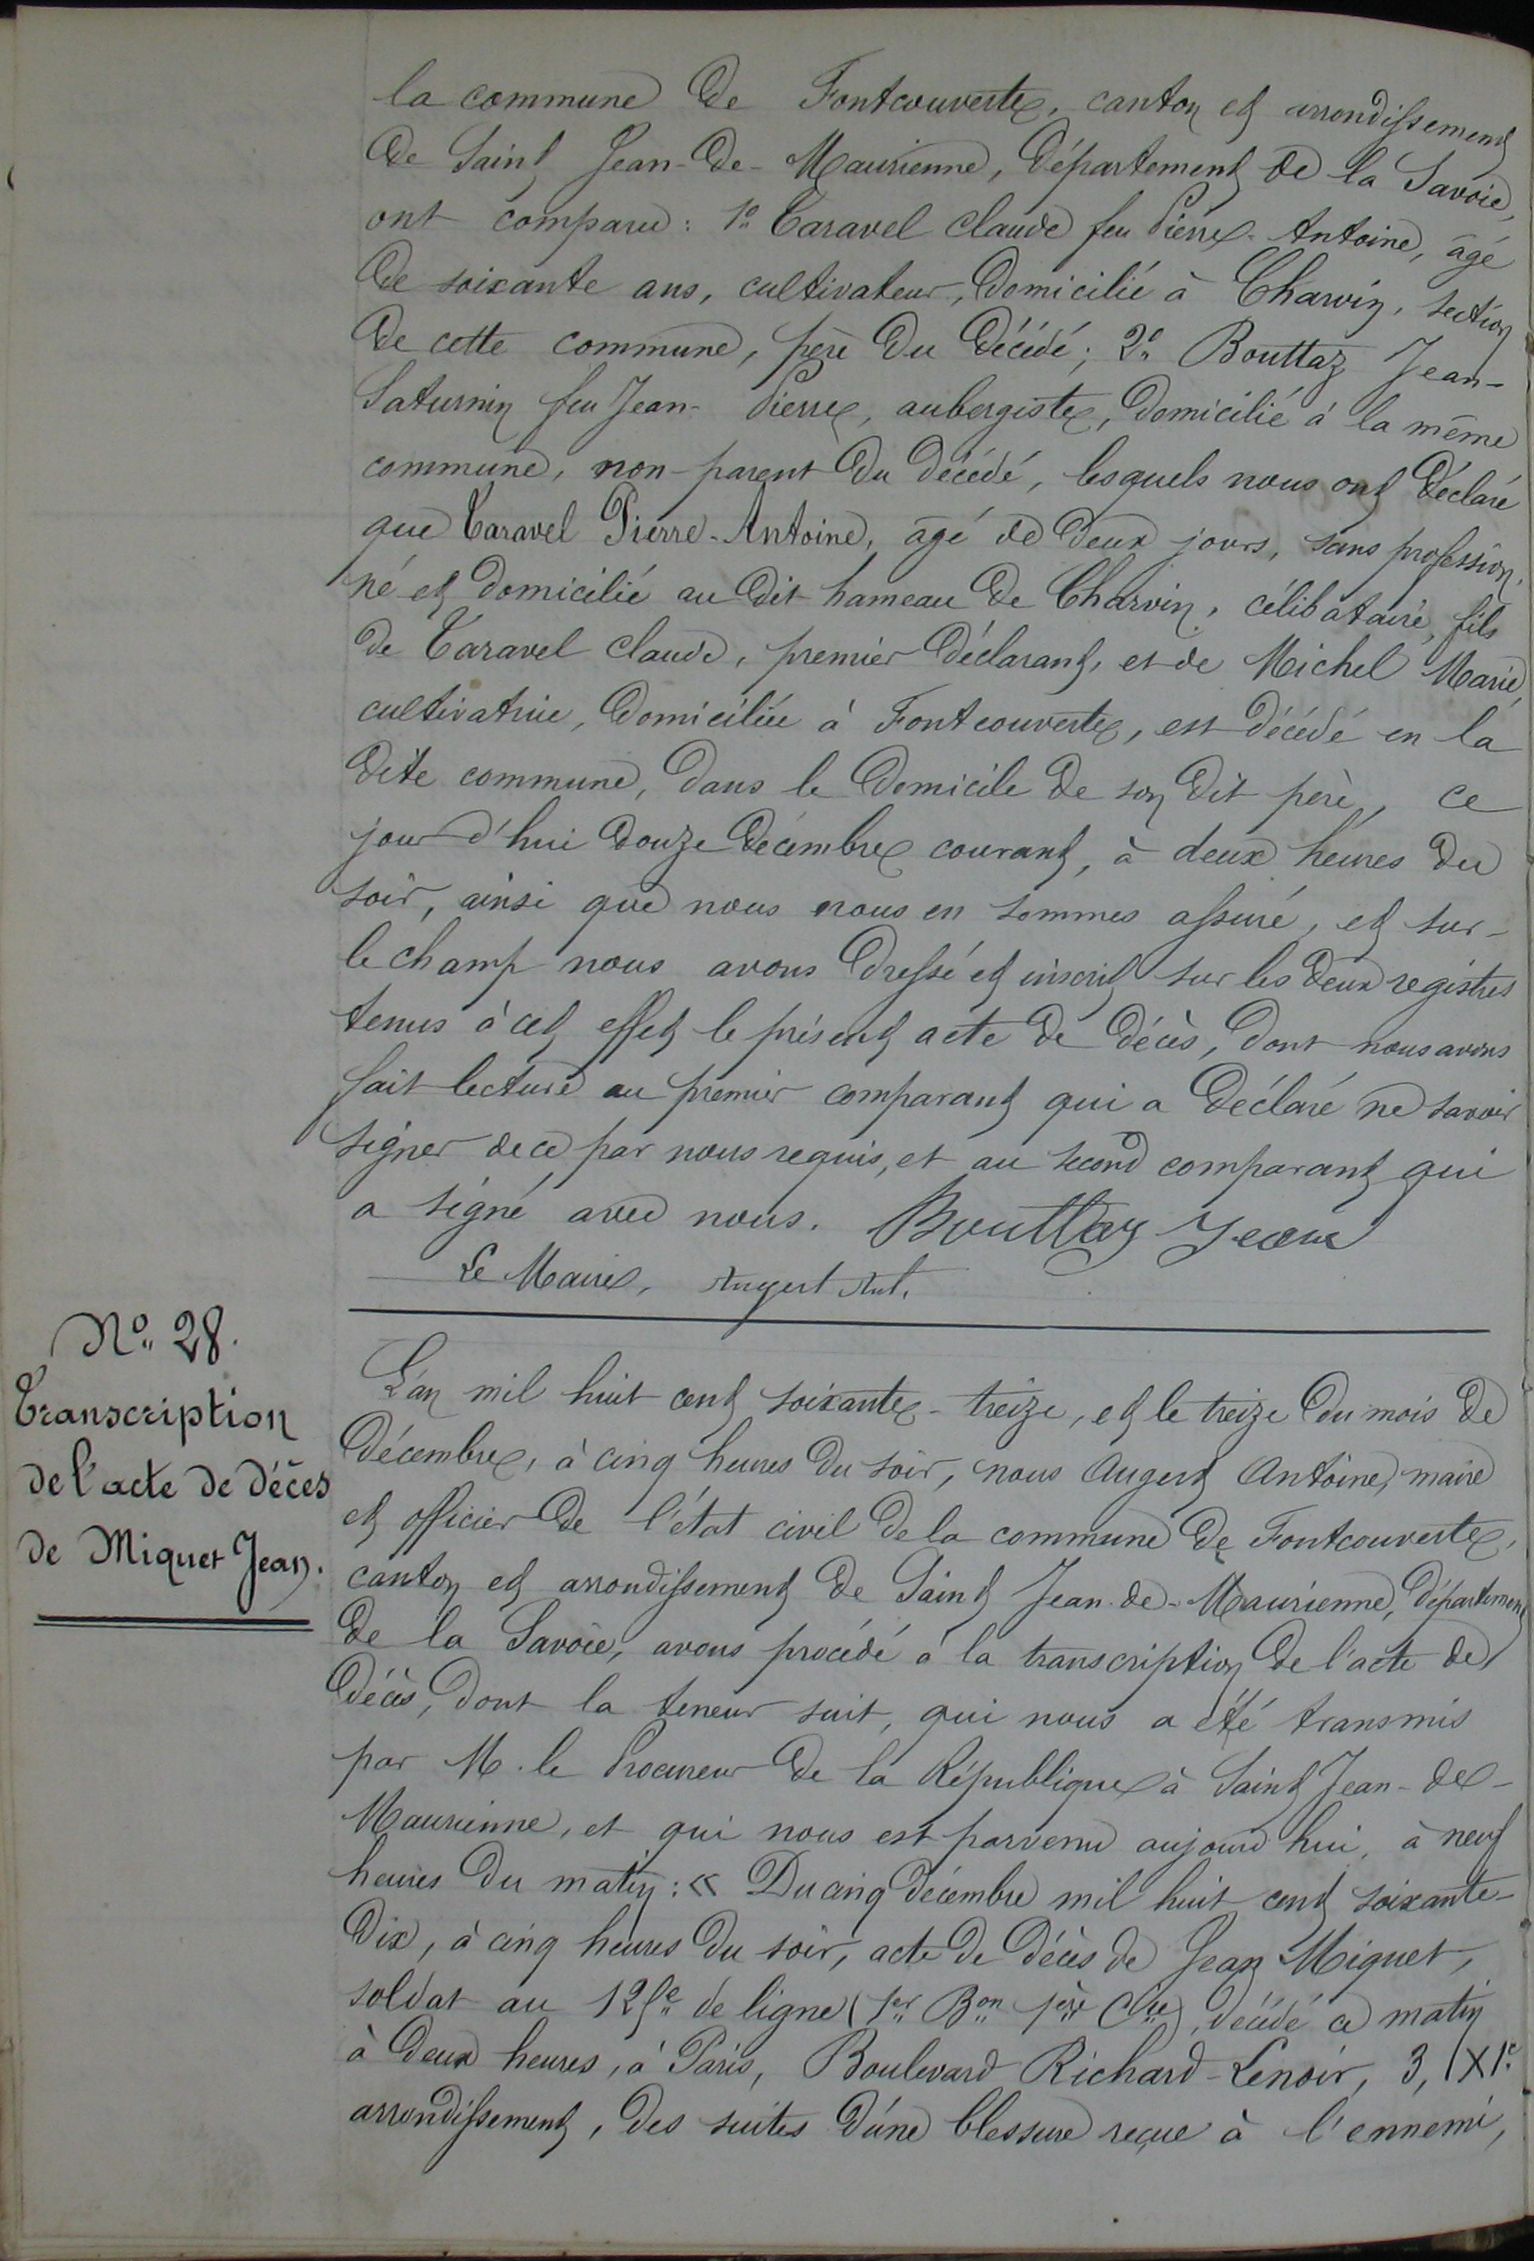 la commune de Fontcouverte, canton et arrondissement
de Saint Jean-de-Maurienne, département de la Savoie,
ont comparu : 1º Taravel Claude feu Pierre-Antoine, âgé
de soixante ans, cultivateur, domicilié à Charvin, section
de cette commune, père du décédé ; 2º Bouttaz Jean-
Saturnin feu Jean-Pierre, aubergiste, domicilié à la même
commune, non-parent du décédé, lesquels nous ont déclaré
que Taravel Pierre-Antoine, âgé de deux jours, sans profession,
né et domicilié au dit hameau de Charvin, célibataire, fils
de Taravel Claude, premier déclarant, et de Michel Marie,
cultivatrice, domiciliée à Fontcouverte, est décédé en la
dite commune, dans le domicile de son dit père, ce
jour d'hui douze décembre courant, à deux heures du
soir, ainsi que nous nous en sommes assuré, et sur-
le champ nous avons dressé et inscrit sur les deux registres
tenus à cet effet le présent acte de décès, dont nous avons
fait lecture au premier comparant qui a déclaré ne savoir
signer de ce par nous requis, et au second comparant qui
a signé avec nous. Bouttaz Jean
Le Maire, Augert Ant.
Nº 28.
Transcription
de l'acte de décès
de Miquet Jean.
L'an mil huit cent soixante-treize, et le treize du mois de
décembre, à cinq heures du soir, nous Augert Antoine, maire
et officier de l'état civil de la commune de Fontcouverte,
canton et arrondissement de Saint Jean-de-Maurienne, département
de la Savoie, avons procédé à la transcription de l'acte de
décès, dont la teneur suit, qui nous a été transmis
par M. le Procureur de la République à Saint Jean-de-
Maurienne, et qui nous est parvenu aujourd'hui, à neuf
heures du matin : « Du cinq décembre mil huit cent soixante-
dix, à cinq heures du soir, acte de décès de Jean Miquet,
soldat au 125e de ligne (1er Bon 1ère Cie), décédé ce matin
à deux heures, à Paris, Boulevard Richard-Lenoir, 3, XIe
arrondissement, des suites d'une blessure reçue à l'ennemi,